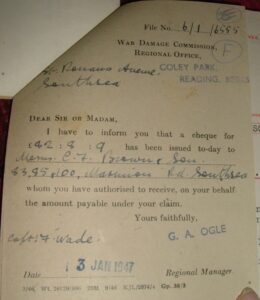 File No. 6/1/6555
WAR DAMAGE COMMISSION,
REGIONAL OFFICE,
F
COLEY PARK,
READING, BERKS
Romans Avenue.
Southsea
DEAR SIR OR MADAM,
I have to inform you that a cheque for
£42 : 8 : 9 has been issued to-day to
Messrs. C. J. Brown & Son.
Rd. Southsea
whom you have authorised to receive, on your behalf
the amount payable under your claim.
Yours faithfully,
Wade.
G. A. OGLE
Date 13 JAN 1947 Regional Manager.
Gp. 38/3